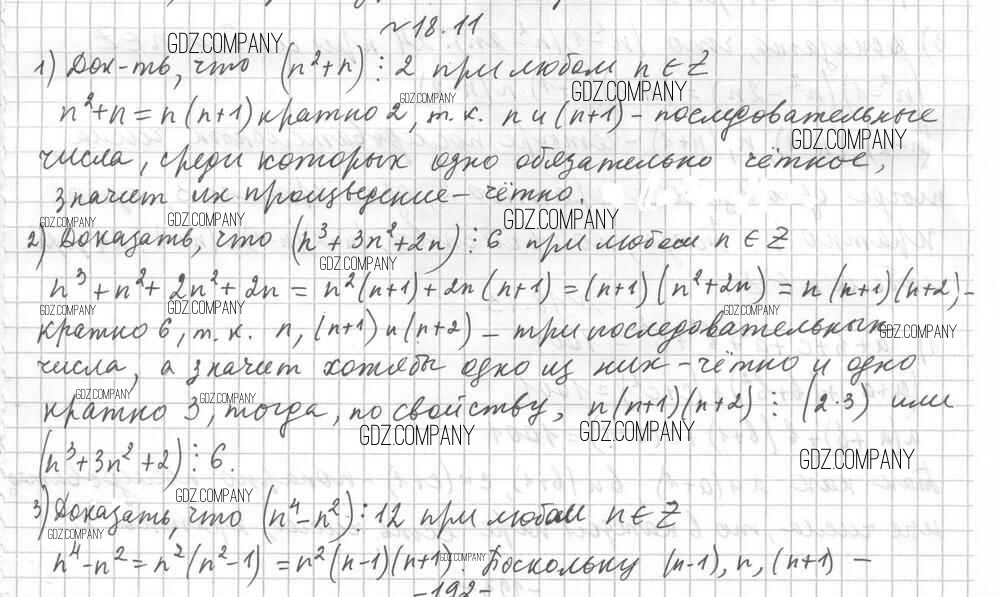 №18.11
GDZ.COMPANY
1) Док-ть, что (n²+n)⋮2 при любом n ∈ Z
GDZ.COMPANY GDZ.COMPANY
n²+n = n(n+1) кратно 2, т.к. n и (n+1) – последовательные
GDZ.COMPANY
числа, среди которых одно обязательно чётное,
значит их произведение – чётно.
GDZ.COMPANY GDZ.COMPANY GDZ.COMPANY
2) Доказать, что (n³+3n²+2n)⋮6 при любом n ∈ Z
GDZ.COMPANY
n³+n²+2n²+2n = n²(n+1)+2n(n+1) = (n+1)(n²+2n) = n(n+1)(n+2) –
GDZ.COMPANY GDZ.COMPANY GDZ.COMPANY
кратно 6, т.к. n, (n+1) и (n+2) – три последовательных
GDZ.COMPANY
числа, а значит хотябы одно из них – чётно и одно
GDZ.COMPANY GDZ.COMPANY
кратно 3, тогда, по свойству, n(n+1)(n+2)⋮(2·3) или
GDZ.COMPANY GDZ.COMPANY
(n³+3n²+2)⋮6.
GDZ.COMPANY
GDZ.COMPANY
3) Доказать, что (n⁴–n²)⋮12 при любом n ∈ Z
GDZ.COMPANY
n⁴–n² = n²(n²–1) = n²(n–1)(n+1). Поскольку (n–1), n, (n+1) –
GDZ.COMPANY
–192–